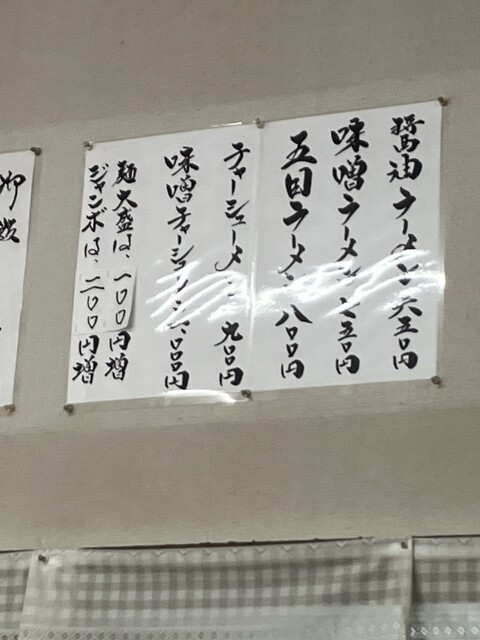 醤油ラーメン 六五〇円
味噌ラーメン 七五〇円
五目ラーメン 八〇〇円
チャーシューメン 九〇〇円
味噌チャーシューメン 一、〇〇〇円
麺大盛は、一〇〇円増
ジャンボは、二〇〇円増
御飯